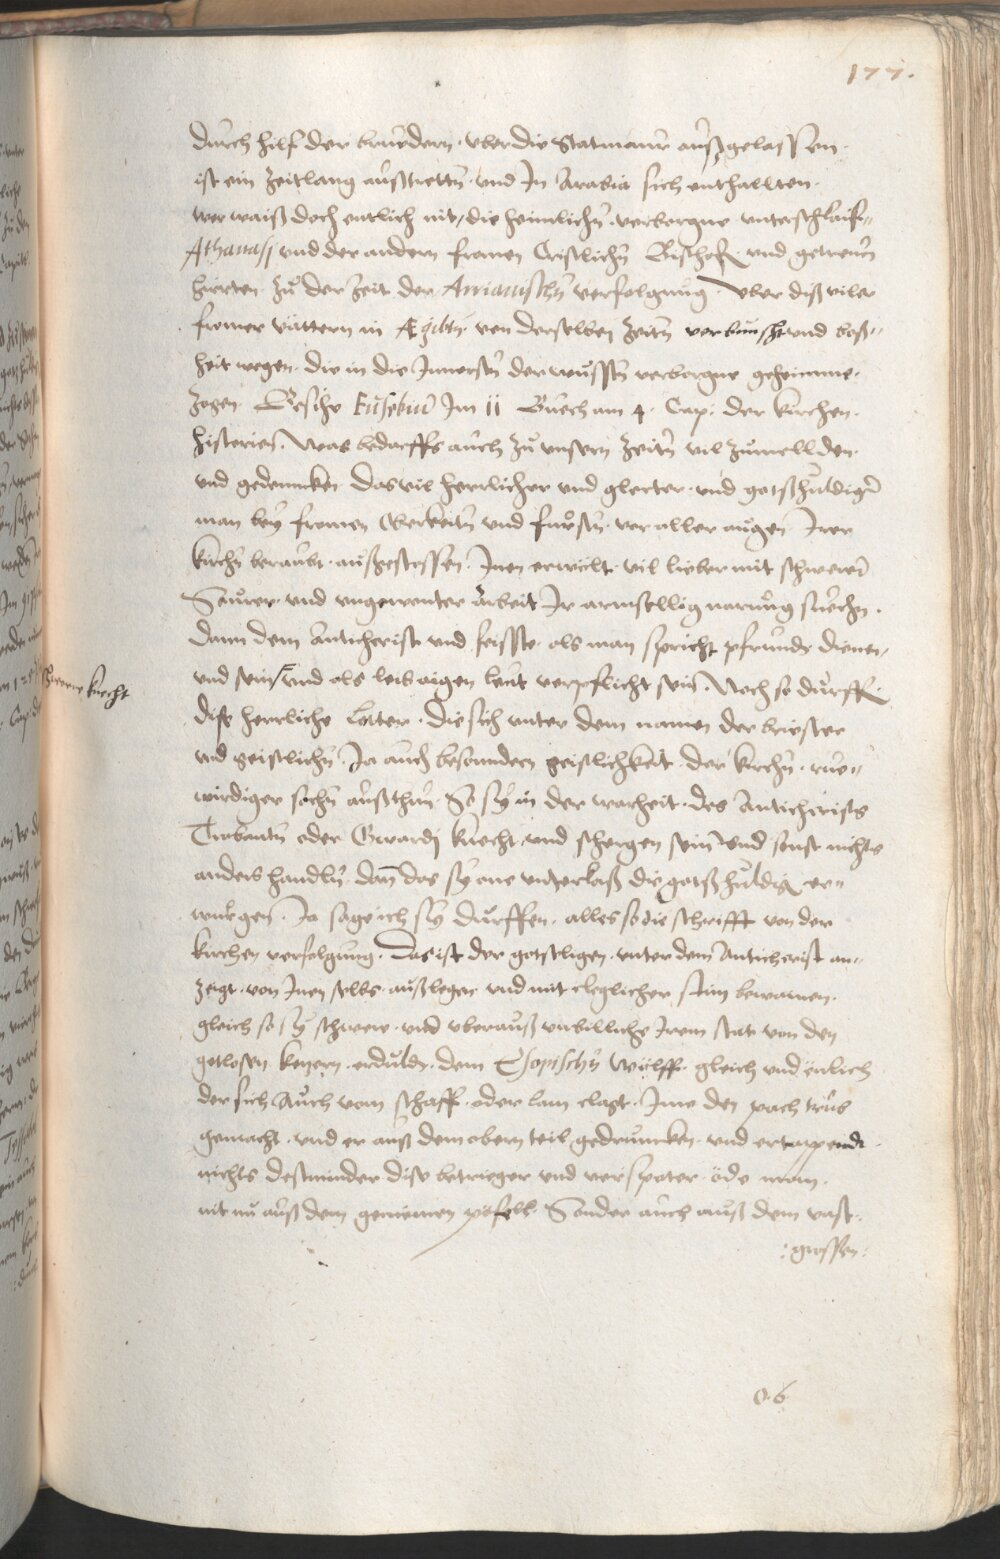 177.
durch hilf der bruedern · vber die Statmaur außgelassen ·
ist ein Zeitlang außtrettn̄ · vnd In Arabia sich enthallten ·
wer waiß doch entlich nit / die heimlichn̄ verborgne vnterschlaüf„
Athanasj vnd der andern fromen Cristlichn̄ Bischofn · vnd getreuen
hirten · Zů der Zeit der Arrianischn̄ verfolgnüg · Vber diß viler
fromer vättern in Ægiptn̄ von derselben Zeitn̄ vnd boß„
heit wegen · die in die Innerstn̄ der wüsstn̄ verborgne geheimme ·
Zogen · Besihe Eüsebiū Im 11 Buech am 4 · Cap: der kirchen ·
historien · Was bedarffs auch Zů vnsern Zeitn̄ vil Zumellden ·
vnd gedenncken das vil herrlicher vnd glerter · vnd gotßhuldiger
man bey fromen Oberkeitn̄ vnd fürstn̄ · vor aller augen Irer
kirchn̄ beraubt · außgestossen · Inen erwelt · vil lieber mit schwerer
Saurer · vnd vngewenter arbeit Ir armsellig narung suechn ·
dann dem Anticherist vnd feisste · als man spricht pfründe dienen /
vnd sein vnd als leib aigen leut verpflicht sein · Noch so dürffn
dise herrliche Lotter · die sich vnter dem namen der briester
vnd geistlichn̄ · Ja auch besonndern geistlichkeit · der kirchn̄ ·
wirdiger sachn̄ außthun · So sy in der warheit · des Antichrists
Trabantn̄ oder Gwardj knecht · vnd schergen sein vnd sonst nichts
anders handln̄ · dan̄ das sy one vnterlaß die gotßhuldign er„
würgen · Ja sage ich sy dürffen · alles so die schrifft von der
kirchen verfolgung · das ist der gotseligen · vnter dem Antichrist an„
Zeigt · von Inen selbs · außlegen vnd mit cleglicher stim bewainen ·
gleich so sy schwere · vnd vberauß vnbilliche Irem stat von den
gotlosen ketzern · erdulde · dem Esopischn̄ Wolff · gleich vnd enlich
der sich Auch vom schaff · oder lam clagt · Ime den pach trüb
gemacht · vnd er auß dem obern teil gedruncken · vnd
nichts destminder dise betrieger vnd verspoter · öde
nit nu auß dem gemeinen pöfell · Sonder auch auß dem vast ·
: grossen :
knecht
o 6